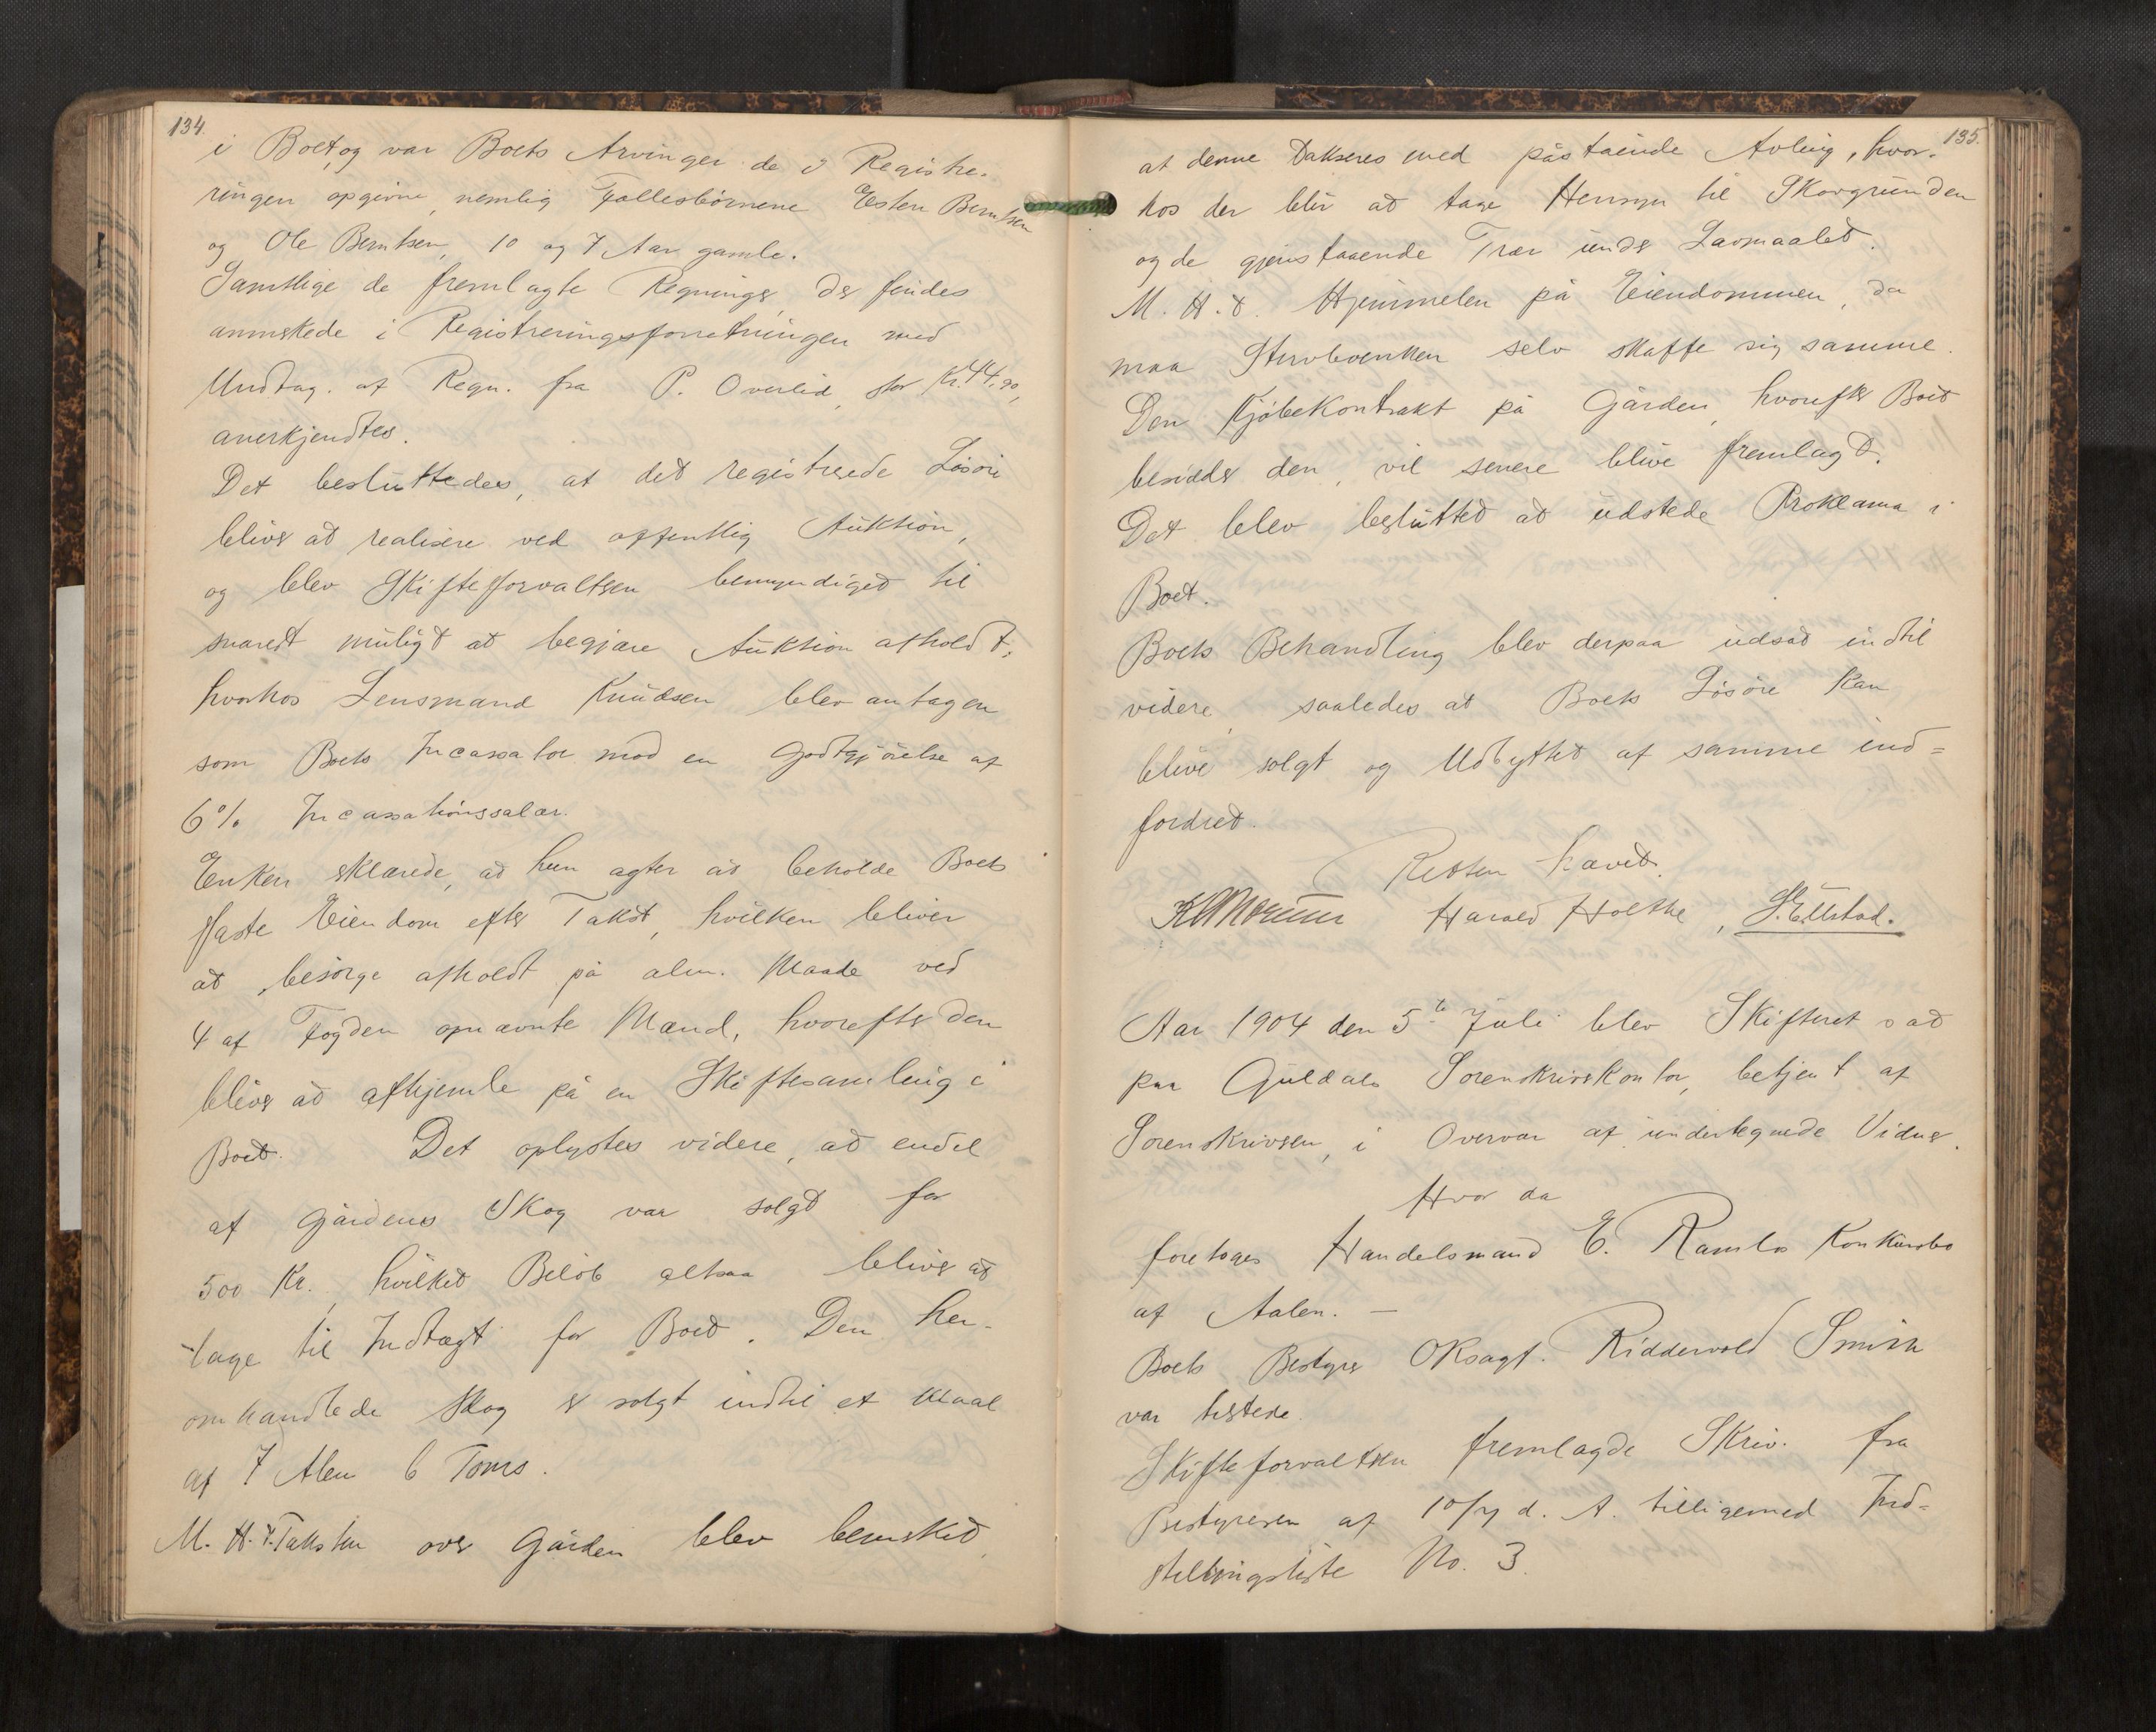 134.
i Boet, og var Boets Arvinger de i Registre-
ringen opgivne, nemlig Fællesbørnene Esten Berntsen
og Ole Berntsen, 10 og 7 Aar gamle.
Samtlige de fremlagte Regninger, der findes
anmerkede i Registreringsforretningen med
Undtag. af Regn. fra P. Overlid, stor Kr. 44.90,
anerkjendtes.
Det besluttedes, at det registrerede Løsøre
bliver at realisere ved offentlig Auktion,
og blev Skifteforvalteren bemyndiget til
snarest muligt at begjære Auktion afholdt,
hvorhos Lensmand Knudsen blev antagen
som Boets Incassator mod en Godtgjörelse af
6 % Incassationssalær.
Enken erklærede, at hun agter at beholde Boets
faste Eiendom efter Takst, hvilken bliver
at besörge afholdt på alm. Maade ved
4 af Fogden opnævnte Mænd, hvorefter den
bliver at afhjemle på en Skiftesamling i
Boet. Det oplystes videre, at endel
af Gårdens Skog var solgt for
500 Kr., hvilket Beløb altsaa bliver at
tage til Indtægt for Boet. Den her-
omhandlede Skog er solgt indtil et Maal
af 7 Alen 6 Toms.
M. H. t. Taksten over Gården blev bemerket,
135.
at denne takseres med påstående Avling, hvor-
hos der blir at tage Hensyn til Skovgrunden
og de gjenstaaende Trær under Lavmaalet.
M. H. t. Hjemmelen på Eiendommen, da
maa Stervboenken selv skaffe sig samme.
Den Kjøbekontrakt på Gården, hvorefter Boet
besidder den, vil senere blive fremlagt.
Det blev besluttet at udstede Proklama i
Boet.
Boets Behandling blev derpaa udsat indtil
videre, saaledes at Boets Løsøre kan
blive solgt og Udbyttet af samme ind=
fordret.
Retten hævet.
Harald Holthe, S. Ellstad.
Aar 1904 den 5te Juli blev Skifteret sat
paa Guldals Sorenskriverkontor, betjent af
Sorenskriveren, i Overvær af undertegnede Vidner.
Hvor da
foretoges Handelsmand E. Ramlos Konkursbo
af Aalen. —
Boets Bestyrer Oksagf. Ridderwold Smith
var tilstede.
Skifteforvalteren fremlagde Skriv. fra
Bestyreren af 10/7 d. A. tilligemed Ind=
stillingsliste No. 3.